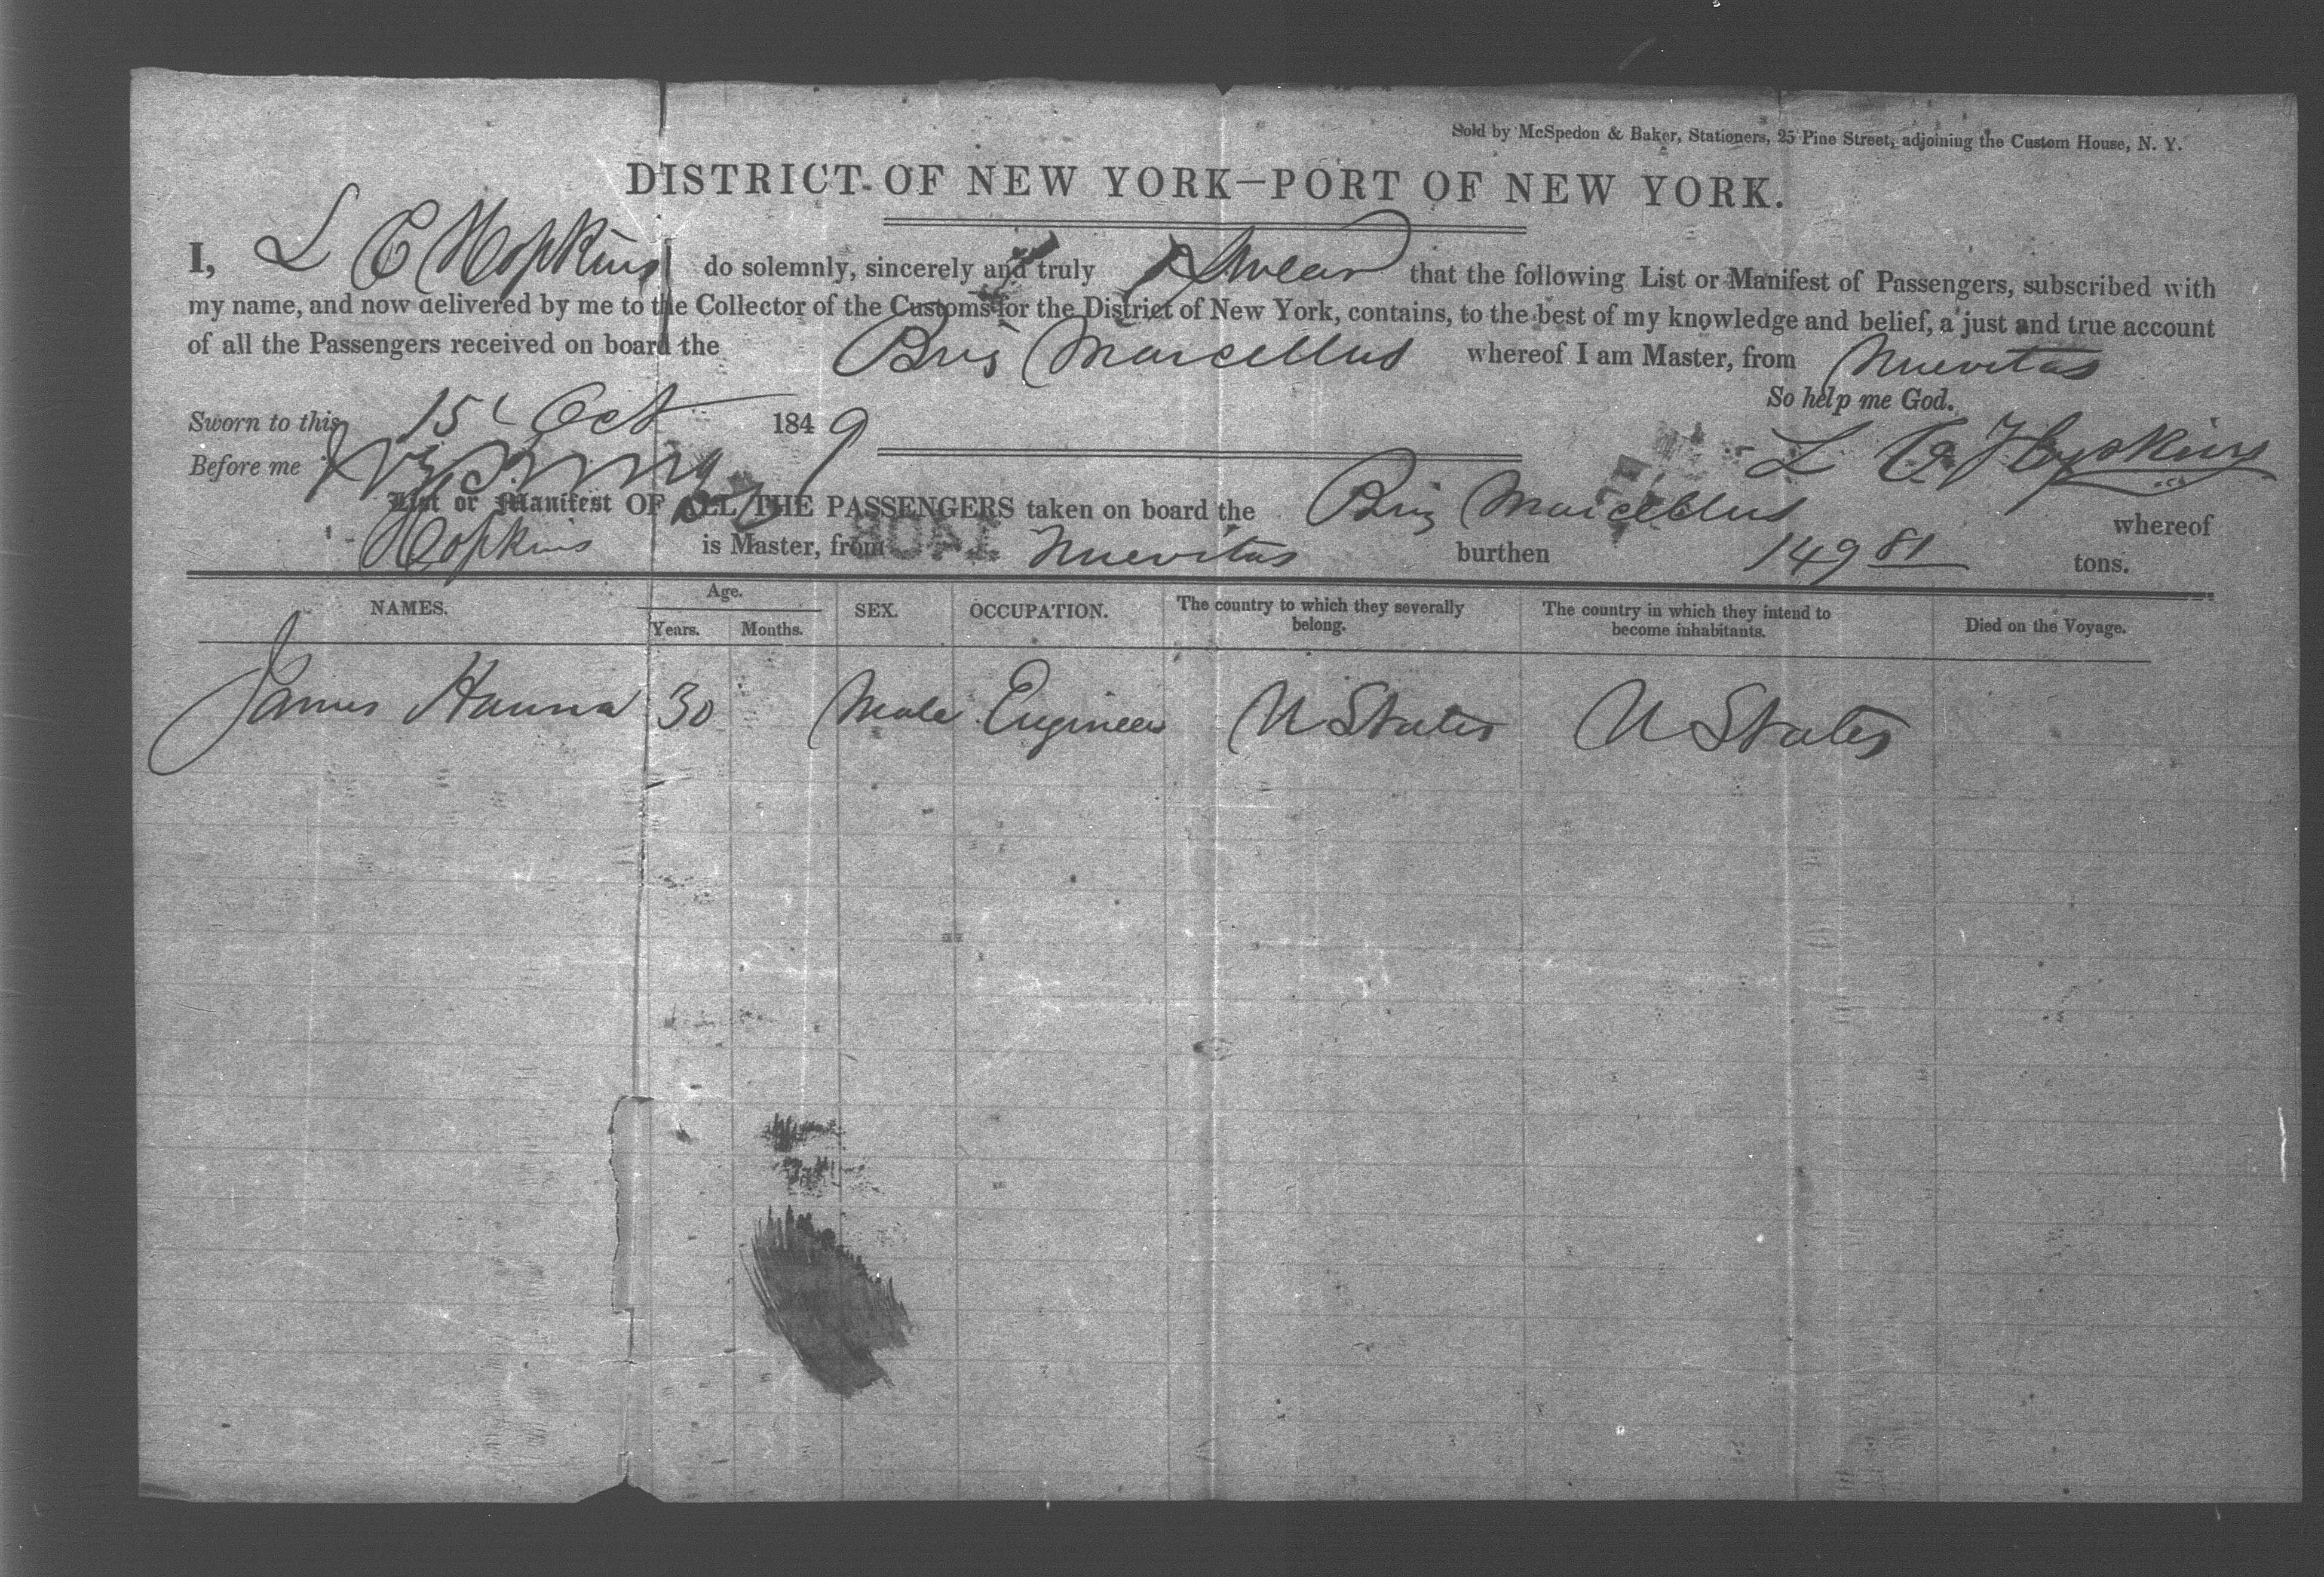 Sold by McSpedon & Baker, Stationers, 25 Pine Street, adjoining the Custom House, N. Y.
DISTRICT OF NEW YORK—PORT OF NEW YORK.
I, L C Hopkins do solemnly, sincerely and truly Swear that the following List or Manifest of Passengers, subscribed with
my name, and now delivered by me to the Collector of the Customs for the District of New York, contains, to the best of my knowledge and belief, a just and true account
of all the Passengers received on board the Brig Marcellus whereof I am Master, from Nuevitas
So help me God.
Sworn to this 15 Oct 1849
L C Hopkins
Before me
List or Manifest OF ALL THE PASSENGERS taken on board the Brig Marcellus whereof
Hopkins is Master, from Nuevitas burthen 149 81 tons.
NAMES. Age. Years. Months. SEX. OCCUPATION. The country to which they severally belong. The country in which they intend to become inhabitants. Died on the Voyage.
James Hanna 30 Male Engineer U States U States